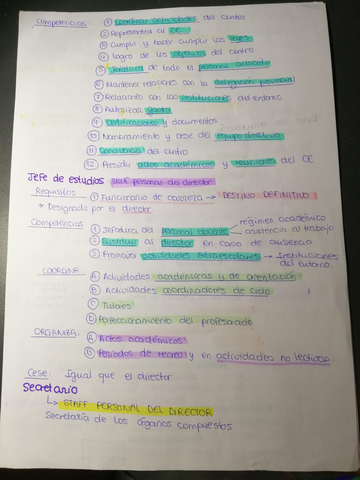 Competencias: ① Coordinar actividades del centro
② Representar al CE
③ Cumplir y hacer cumplir las leyes
④ Logro de los objetivos del centro
⑤ Jefatura de todo el personal
⑥ Mantener relaciones con la delegación provincial
⑦ Relaciones con las instituciones del entorno
⑧ Autorizar gastos
⑨ Certificaciones y documentos
⑩ Nombramiento y cese del equipo directivo
⑪ del centro
⑫ Presidir actos académicos y reuniones del CE
Jefe de estudios staff personal del director
Requisitos ① Funcionario de carrera → DESTINO DEFINITIVO
* Designado por el director
Competencias ① Jefatura del personal docente régimen académico
asistencia al trabajo
② Sustituir al director en caso de ausencia
③ Promover actividades extraescolares → Instituciones
del entorno
COORDINA Ⓐ Actividades académicas y de orientación
Ⓑ Actividades coordinadores de ciclo
Ⓒ Tutores
Ⓓ Perfeccionamiento del profesorado
ORGANIZA Ⓐ Actos académicos
Ⓑ Periodos de recreo y en actividades no lectivas
Cese: Igual que el director
Secretario
↳ STAFF PERSONAL DEL DIRECTOR
Secretaría de los órganos compuestos